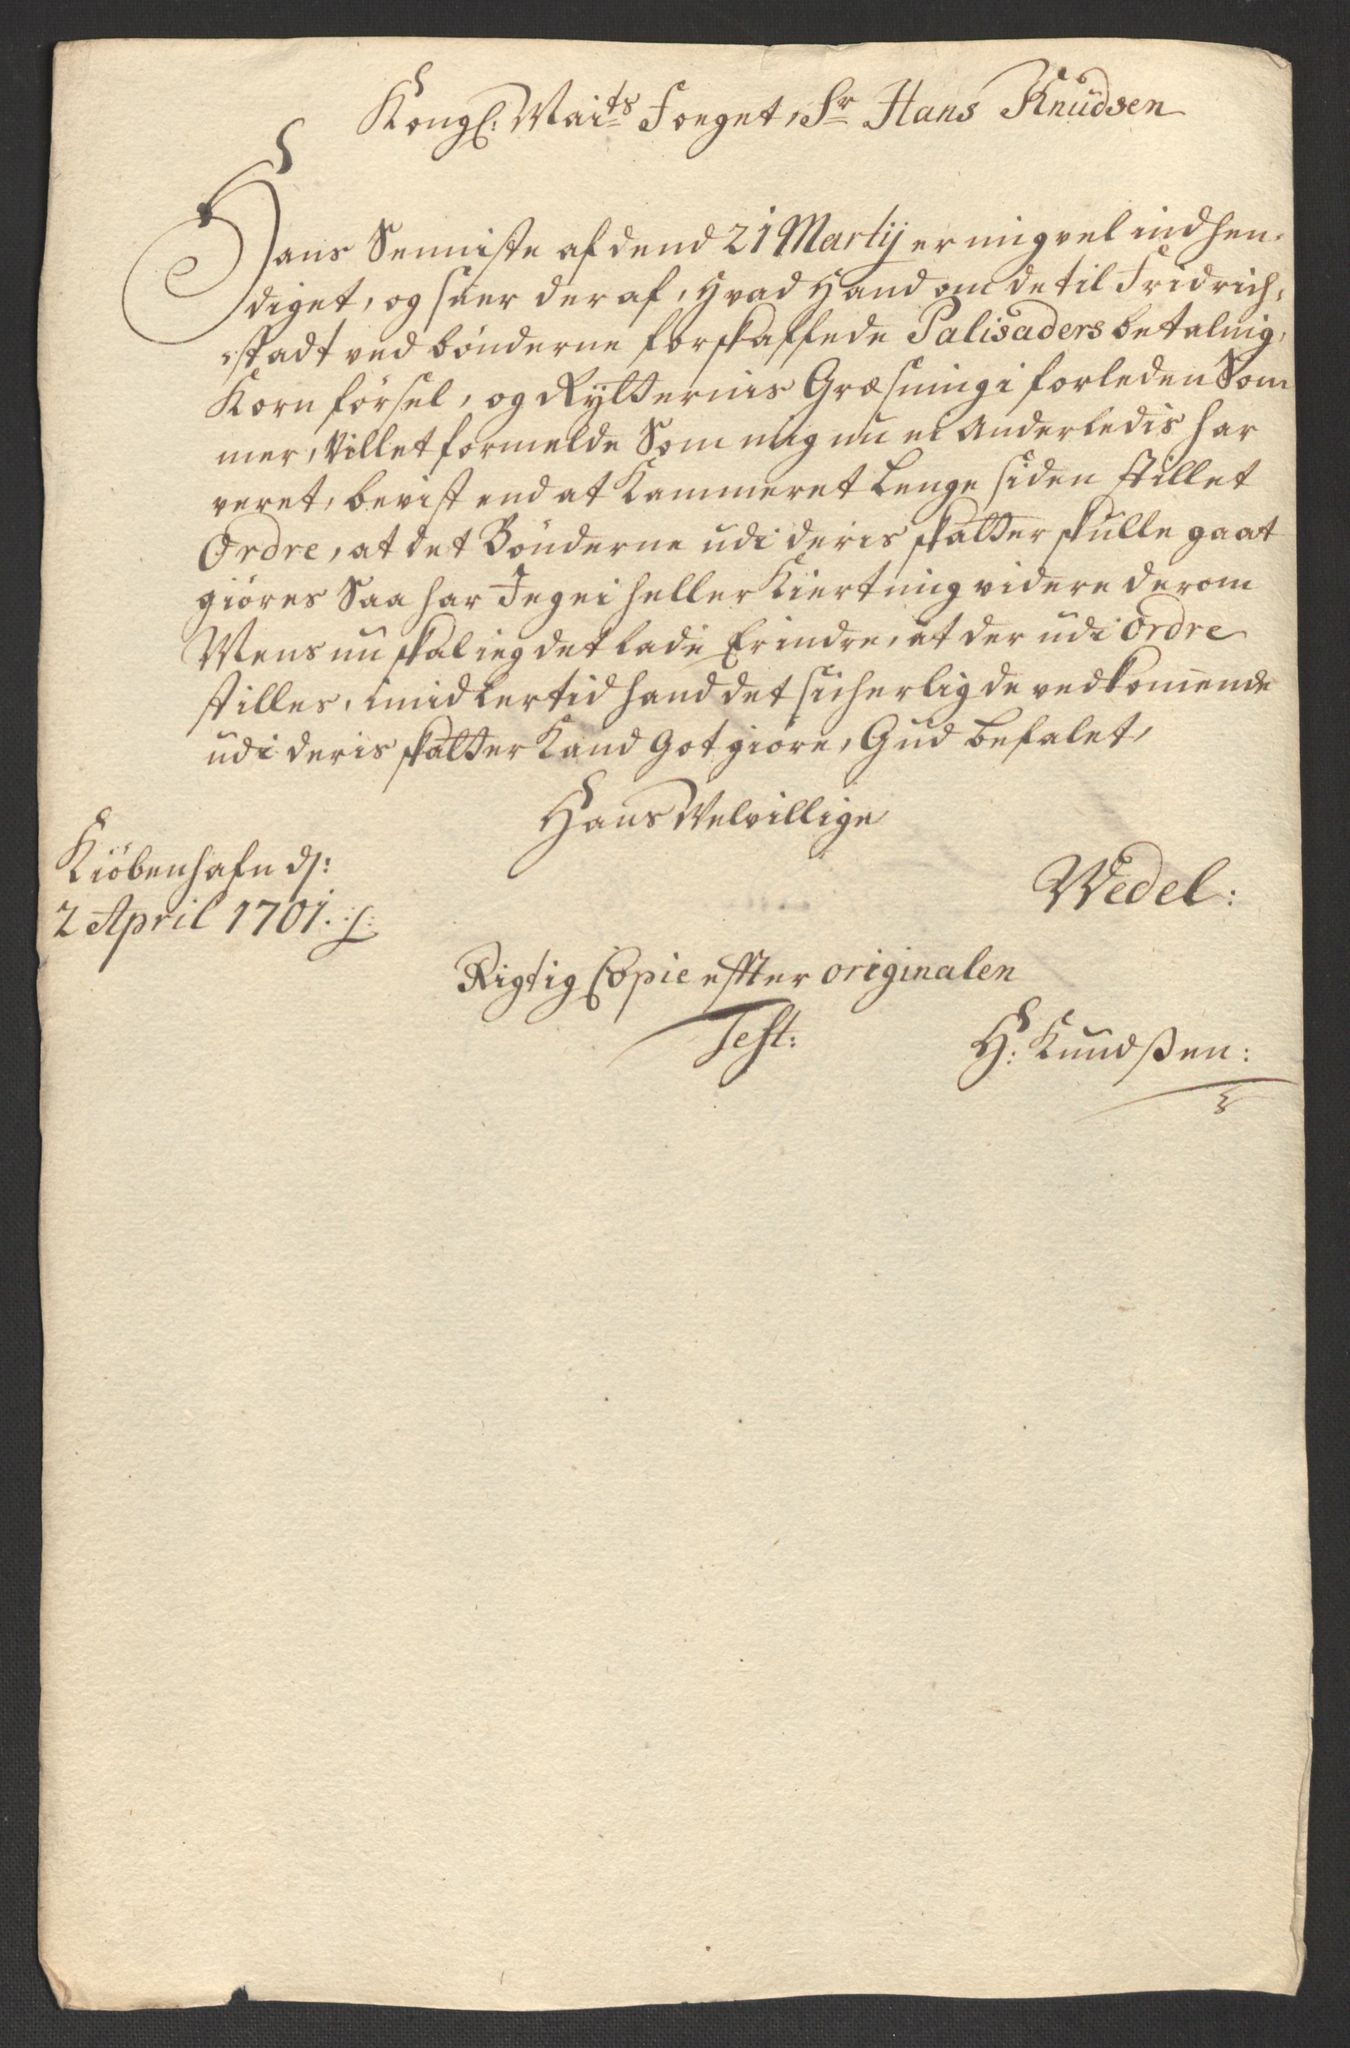 Kongl: Maits Foeget, Sr Hans Knudsen
Hans Senniste af dend 21 Martij er mig vel indhen,
diget, og seer der af, hvad hand om de til Fridrich,
stadt ved bønderne forskaffede Palisaders betalning,
Korn førsel, og Rytternis Græsning i forleden Som
mer, Villet formelde Som mig nu ei Anderledis har
veret, bevist end at Kammeret Lenge siden stillet
Ordre, at det Bønderne udi deris skatter skulle gaat
giøres Saa har Jeg ei heller Kiert mig videre derom
Mens nu skal ieg det lade Erindre, at der udi Ordre
stilles, imidlertid hand det sicherlig de vedkomende
udi deris skatter Kand Got giøre, Gud befalet,
Hans Velvillige
Kiöbenhafn ds:
2 April 1701.
Wedel:
Rigtig Copie effter originalen
Test:
H: Knudssen: